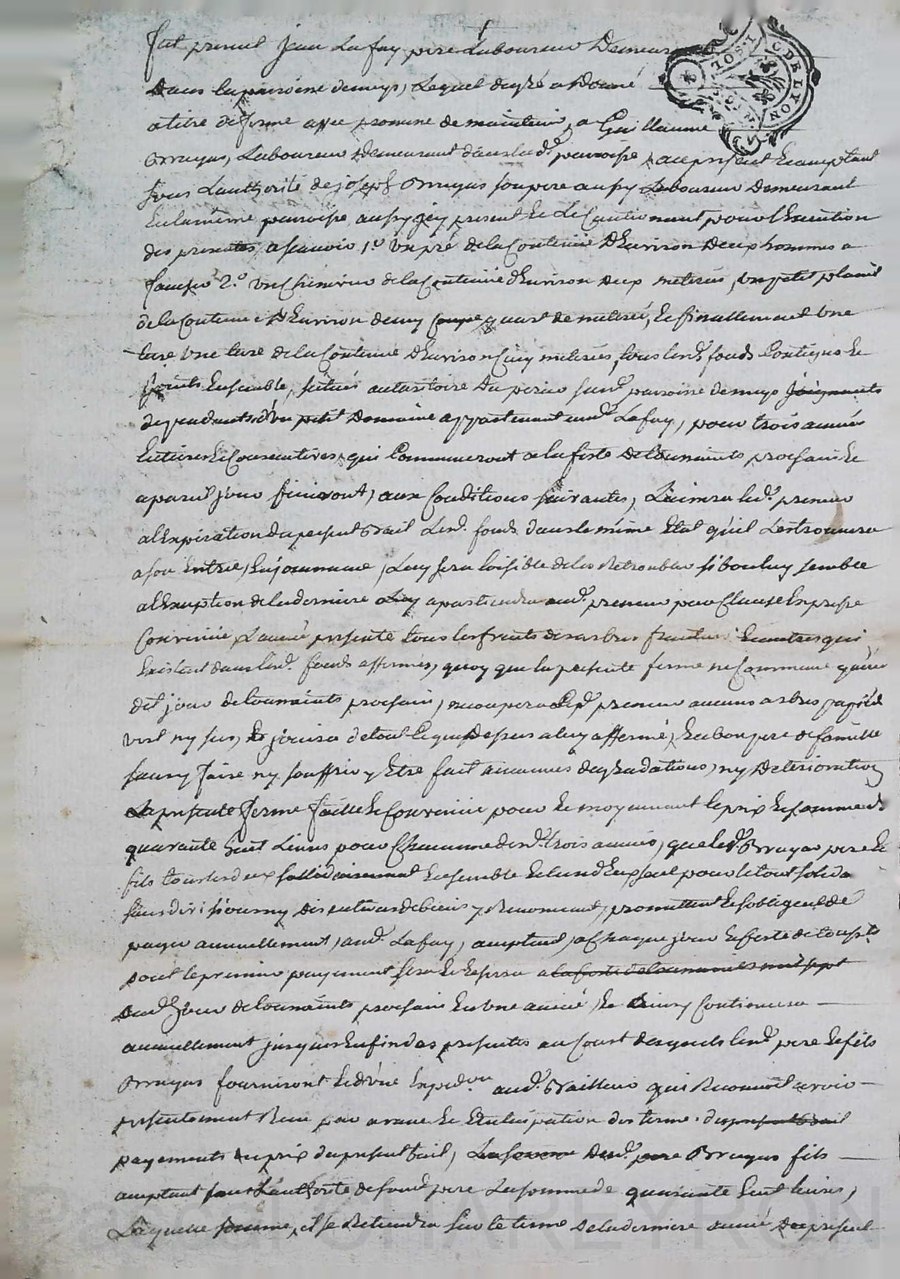 fut present jean Lafay pere Laboureur Demeurt
Dans la paroisse de meys, Lequel de gré a Donné
a titre de ferme avec promesse de maintenir, a Guillaume
Bruyas, Laboureur Demeurant dans lad.e paroisse, acceptant
sous L'authorité de joseph Bruyas son pere aussy Laboureur Demeurant
En la même paroisse aussy present Et Le Cautionnant pour l'Execution
des presentes, a scavoir 1.º Un pré de la Contenue D'Environ Deux hommes a
faucher 2.º Un Chenevier de la Contenue d'Environ Deux meterés, Un petit
de la Contenue D'Environ Demy Coupe quart de meteré, Et finallement Une
terre Une terre de la Contenue D'Environ Cinq meterés, tous lesd. fonds Contigus Et
joints Ensemble, situés au territoire Du perier sur lad. paroisse de meys joignants
dependants d'un petit Domaine appartenant aud. Lafay, pour trois années
Entieres Et Consecutives, qui Commenceront a la feste De toussaints prochain Et
a pareil jour finiront, aux Conditions suivantes, Laissera led. preneur
a l'Expiration du present Bail Lesd. fonds dans le même Etat qu'il Les trouvera
a son Entrée, Luy sera loisible de les Retroubler si bon luy semble
a l'Exception de la derniere apartiendra aud. preneur par Clause Expresse
Convenue, L'année presente tous les fruits des arbres fruitiers Et autres qui
Existent dans lesd. fonds affermés, quoy que la presente ferme ne Commence qu'au
dit jour de toussaints prochain, ne coupera led. preneur aucuns arbres par pied
vert ny sec, Et jouira de tout Ce que Dessus a luy affermé, En bon pere de famille
sans y faire ny souffrir y Etre fait aucunes degradations, ny Deteriorations
La presente ferme faitte Et Convenue pour Et moyennant le prix Et somme de
quarante huit Livres pour Chacune desd. trois années, que lesd. Bruyas pere Et
fils tous les deux solidairement Ensemble Et l'un d'Eux seul pour le tout solid.
sans division ny discution de biens y Renoncant, promettent Et s'obligent de
payer annuellement, aud. Lafay, acceptant, a Chaque jour Et feste de toussts
dont le premier payement sera Et Echerra a la feste de toussaints mil sept
Aud. jour de toussaints prochain En Une année, Et Ainsy Continuera
annuellement jusques En fin des presentes au Court desquels lesd. pere Et fils
Bruyas fourniront Exped.on aud. Bailleur qui Reconnoit avoir
presentement Recu par avance Et Enticipation des terme du present bail
payements du prix du present bail, Dud. pere Bruyas fils
acceptant sous L'authorité de sond. pere La somme de quarante huit Livres,
Laquelle somme, il se Retiendra sur le terme De la derniere année Du present
C. DE LYON
1. SOL
Pascal CHAREYRON